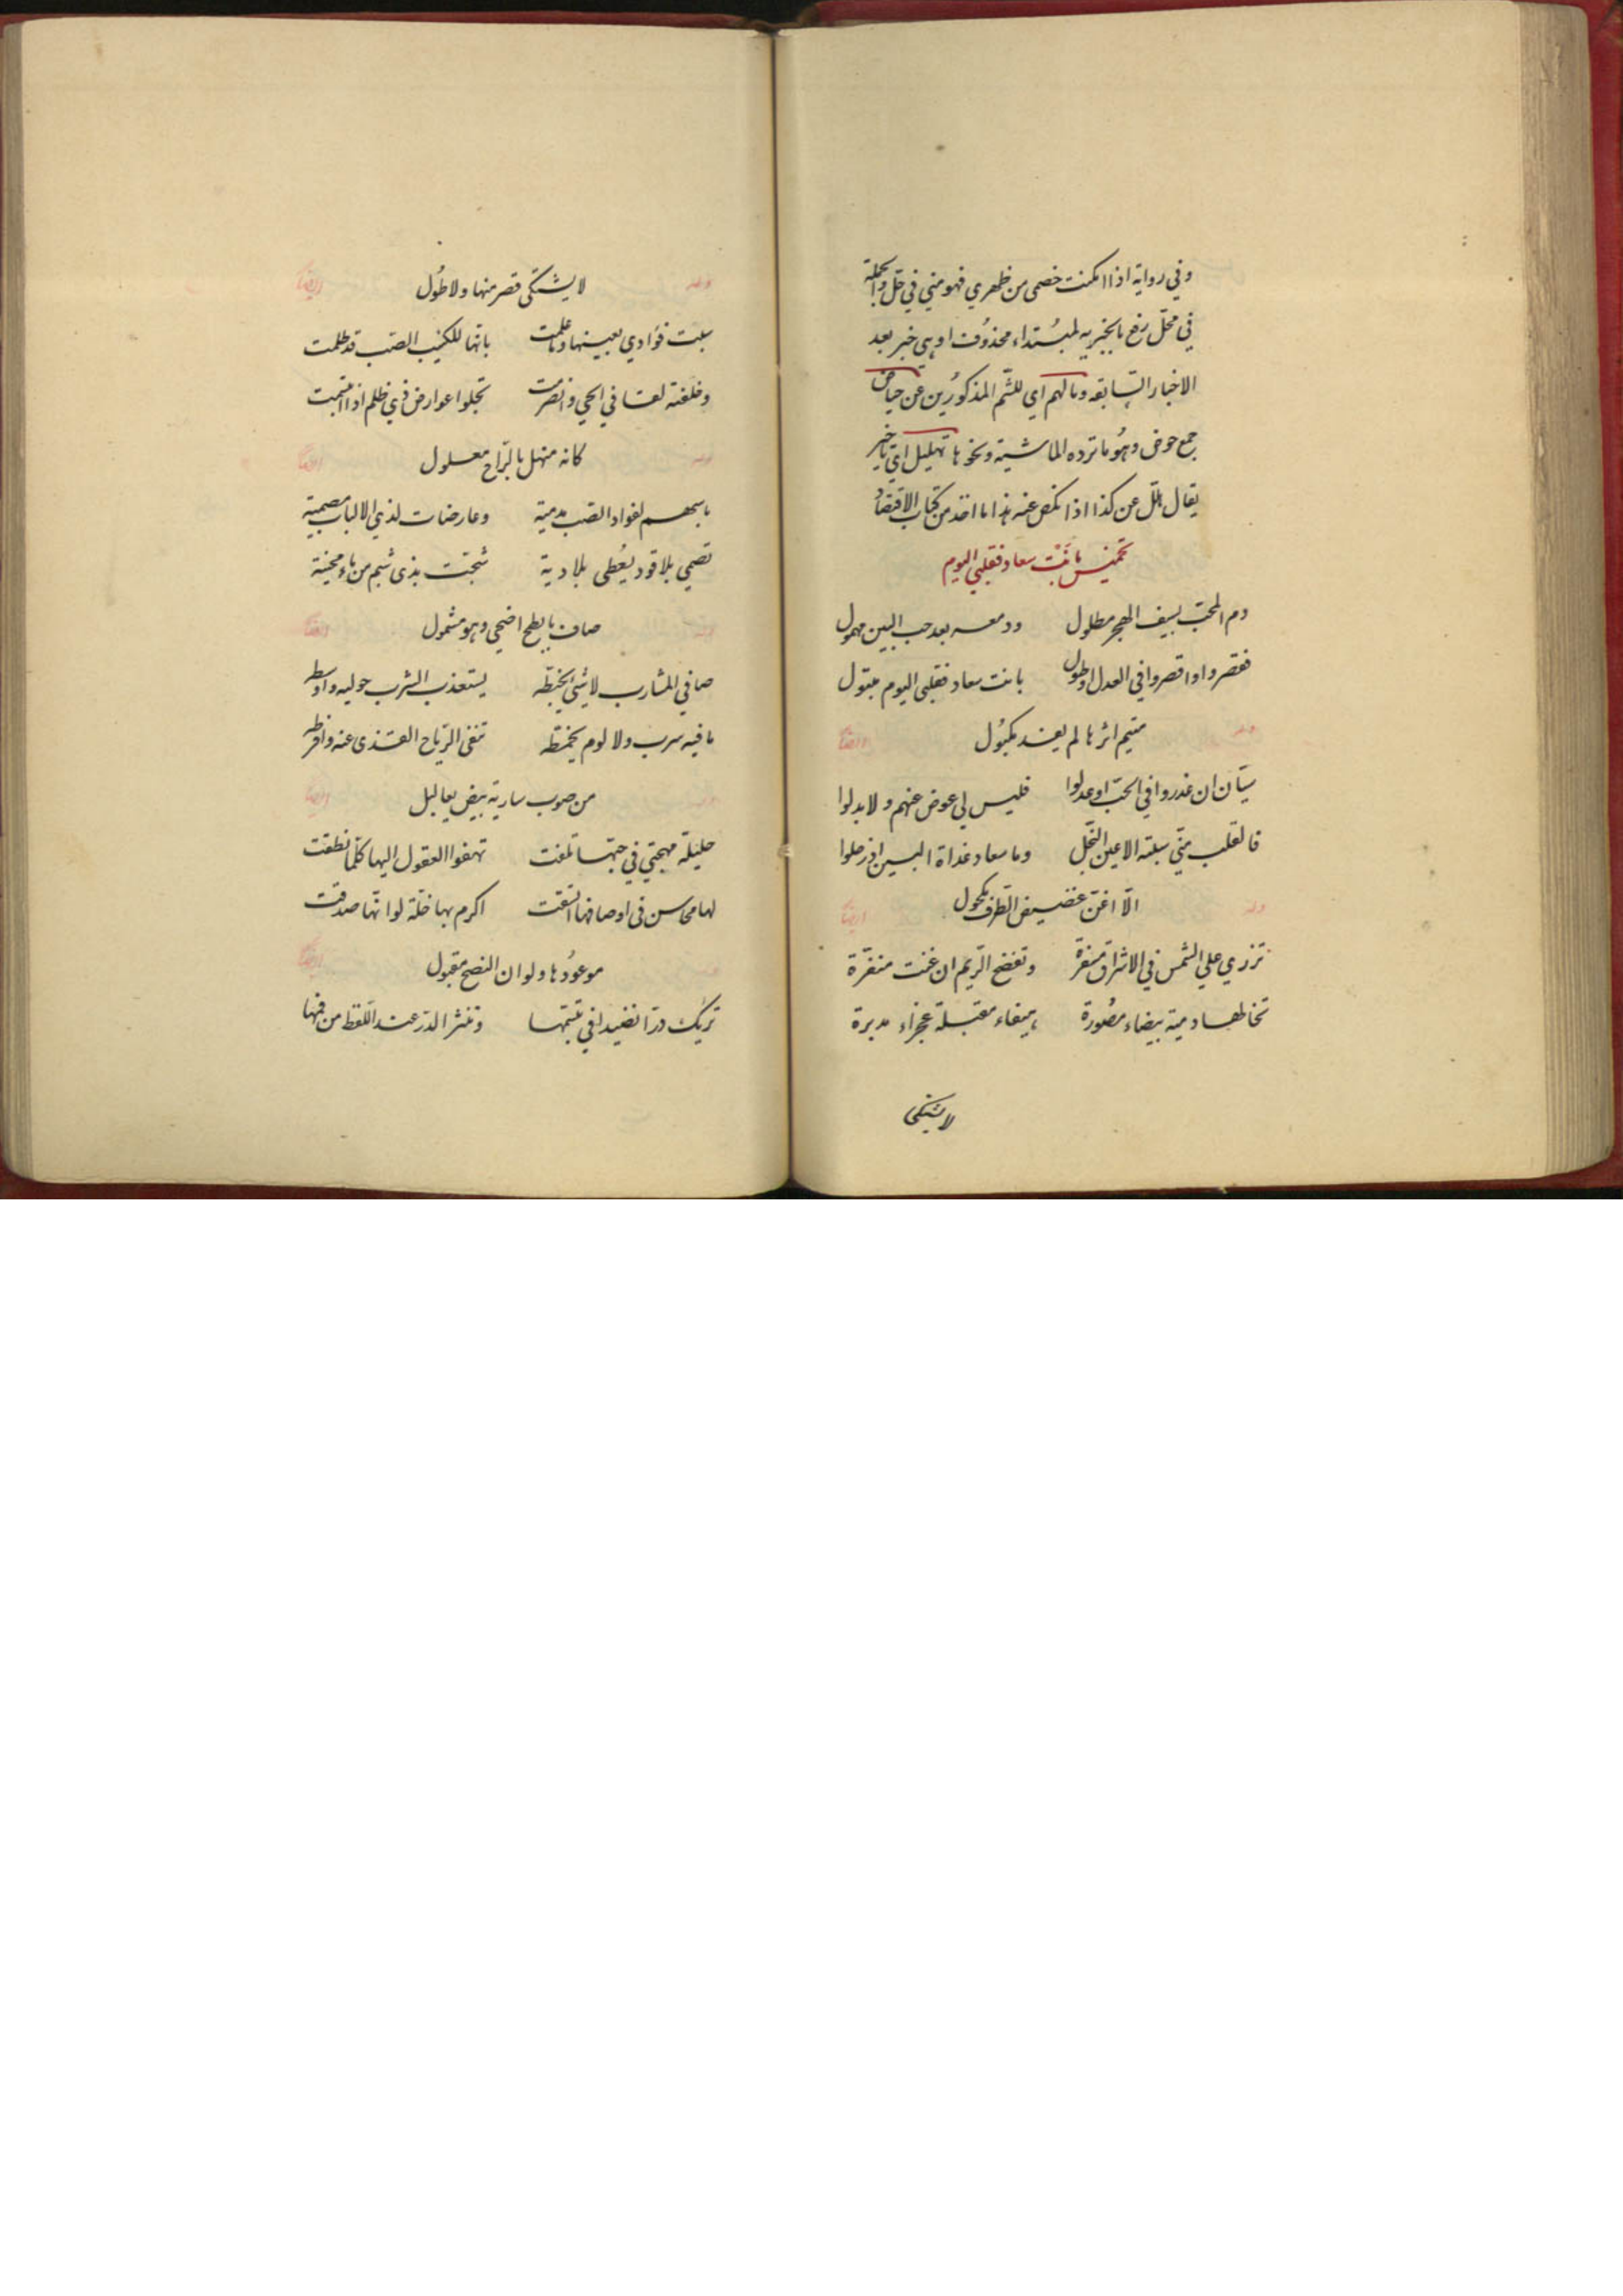 وفي رواية اذا امكنت خصمي من ظهري فهو مني في حل والجملة
في محل رفع بالخبرية لمبتداء محذوف او هي خبر بعد
الاخبار السابقه وما لهم اي للشم المذكورين عن حياض
جمع حوض وهو ما ترده الماشية ونحوها تهليل اي تاخير
يقال هلل عن كذا اذا نكص عنه هذا ما اخذ من كتاب الاقتصاد
تخميس بانت سعاد فقلبي اليوم
دم المحب بسيف الهجر مطلول ودمعه بعد حب البين مهمول
فقصروا او اقصروا في العدل او طول بانت سعاد فقلبي اليوم متبول
وله متيم اثرها لم يفد مكبول ايضا
سيان ان غدروا في الحب او عدلوا فليس لي عوض عنهم ولا بدلوا
فالقلب مني سبلته الاعين النجل وما سعاد غداة البين اذ رحلوا
وله الا اغن غضيض الطرف مكحول ايضا
تزري علي الشمس في الاشراق مسفرة وتفضح الريم ان عنت منفرة
تخالها دمية بيضاء مصورة هيفاء مقبلة عجزاء مدبرة
لا يشتكي
وله لا يشتكى قصر منها ولا طول ايضا
سبت فؤادي بعينها وما علمت بانها للكئيب الصب قد ظلمت
وخلفته لقا في الحي وانصرمت تجلوا عوارض ذي ظلم اذا ابتسمت
وله كانه منهل بالراح معلول ايضا
باسهم لفواد الصب مدمية وعارضات لذي الالباب مصمية
تصمي بلا قود يعطى بلا دية شجت بذي شبم من ماء محنية
وله صاف بابطح اضحى وهو مشمول ايضا
صافي المشارب لا شئ يخبطه يستعذب الشرب حوليه واوسطه
ما فيه سرب ولا لوم يخمطه تنفى الرياح القذى عنه وافرطه
وله من صوب سارية بيض يعاليل ايضا
خليلة مهجتي في حبها تلفت تهفوا العقول اليها كلما نطقت
لها محاسن في اوصافها اتسقت اكرم بها خلة لو انها صدقت
وله موعودها ولو ان النصح مقبول ايضا
تريك درا نضيدا في تبسمها وتنثر الدر عند اللفظ من فمها